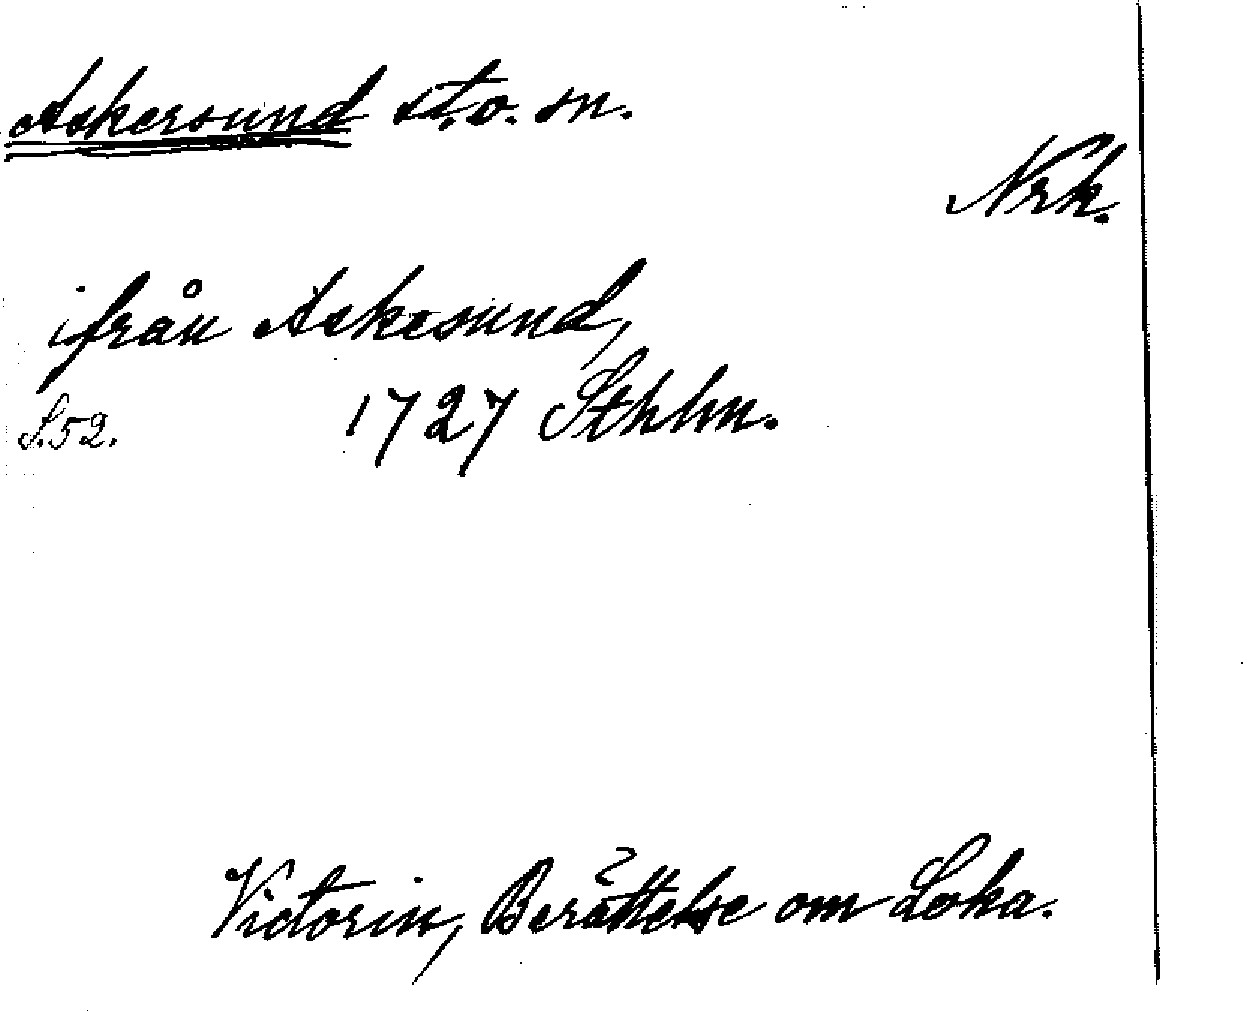 Askersund st. o. sn.
Nrk.
ifrån Askesund,
S. 52. 1727 Sthlm.
Victorin, Berättelse om Loka.